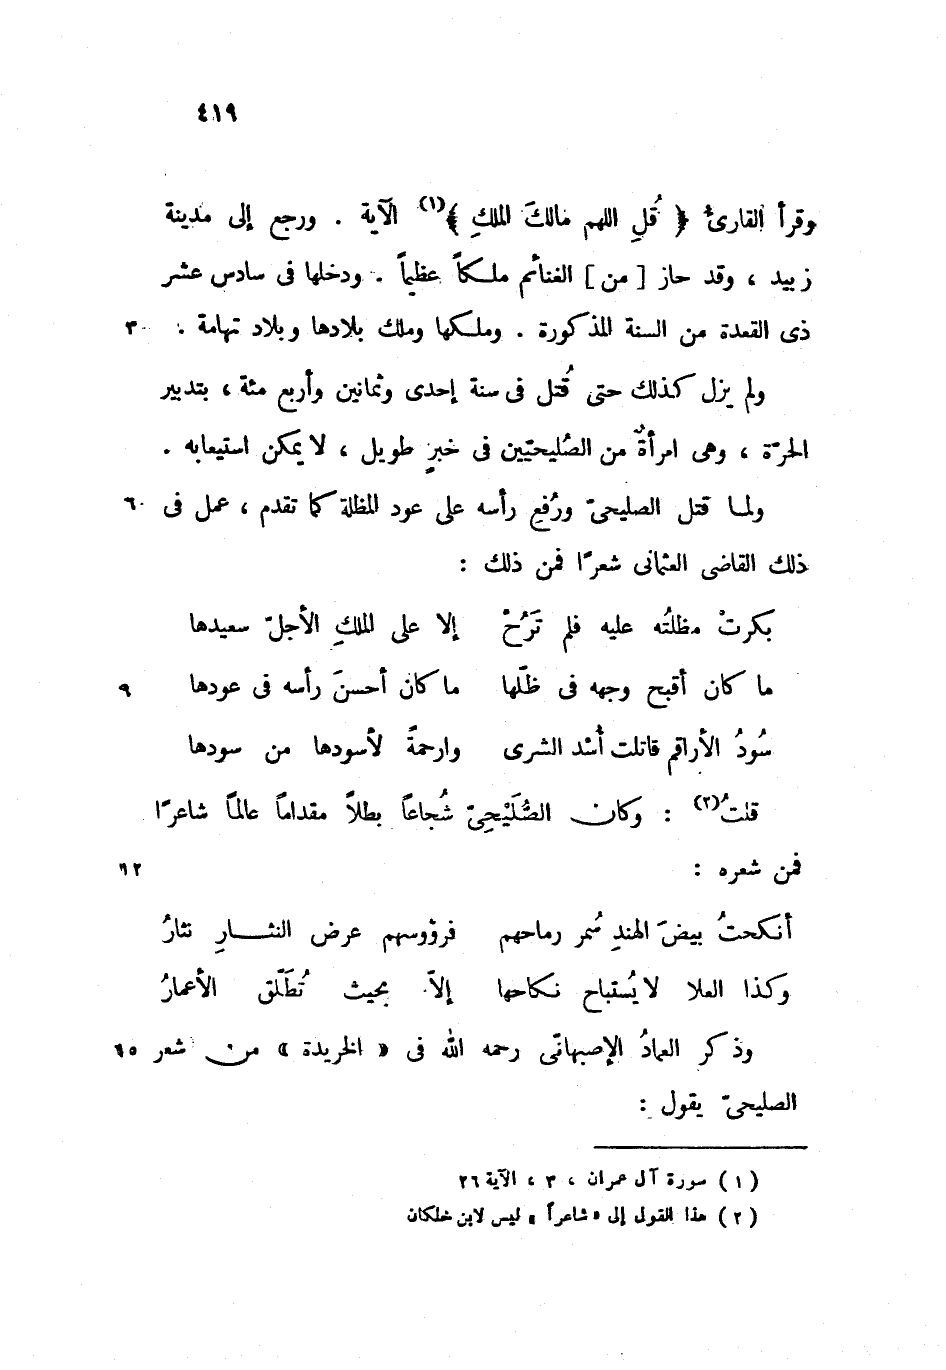 ٤١٩
وقرأ القارئُ ﴿ قُلِ اللهم مالكَ الملكِ ﴾(١) الآية . ورجع إلى مدينة
زبيد ، وقد حاز [ من ] الغنائم ملكاً عظيماً . ودخلها فى سادس عشر
ذى القعدة من السنة المذكورة . وملكها وملك بلادها وبلاد تهامة . ٣
ولم يزل كذلك حتى قُتل فى سنة إحدى وثمانين وأربع مئة ، بتدبير
الحرّة ، وهى امرأةٌ من الصُليحيّين فى خبرٍ طويل ، لا يمكن استيعابه .
ولما قتل الصليحىّ ورُفع رأسه على عود المظلة كما تقدم ، عمل فى ٦
ذلك القاضى العثمانى شعرًا فمن ذلك :
بكرتْ مظلتُه عليه فلم تَرُحْ إلا على الملكِ الأجلّ سعيدها
ما كان أقبح وجهه فى ظلّها ما كان أحسنَ رأسه فى عودها ٩
سُودُ الأراقم قاتلت أُسْد الشرى وارحمةً لأسودها من سودها
قلتُ(٢) : وكان الصُّلَيْحِىّ شُجاعاً بطلاً مقداماً عالماً شاعرًا
فمن شعره : ١٢
أنكحتُ بيضَ الهندِ سُمر رماحهم فرؤوسهم عرض النثارِ نثارُ
وكذا العلا لا يُستباح نكاحها إلاّ بحيث تُطَلّق الأعمارُ
وذكر العمادُ الإصبهانّى رحمه الله فى « الخريدة » من شعر ١٥
الصليحىّ يقول :
( ١ ) سورة آل عمران ، ٣ ، الآية ٢٦
( ٢ ) هذا القول إلى « شاعراً » ليس لابن خلكان